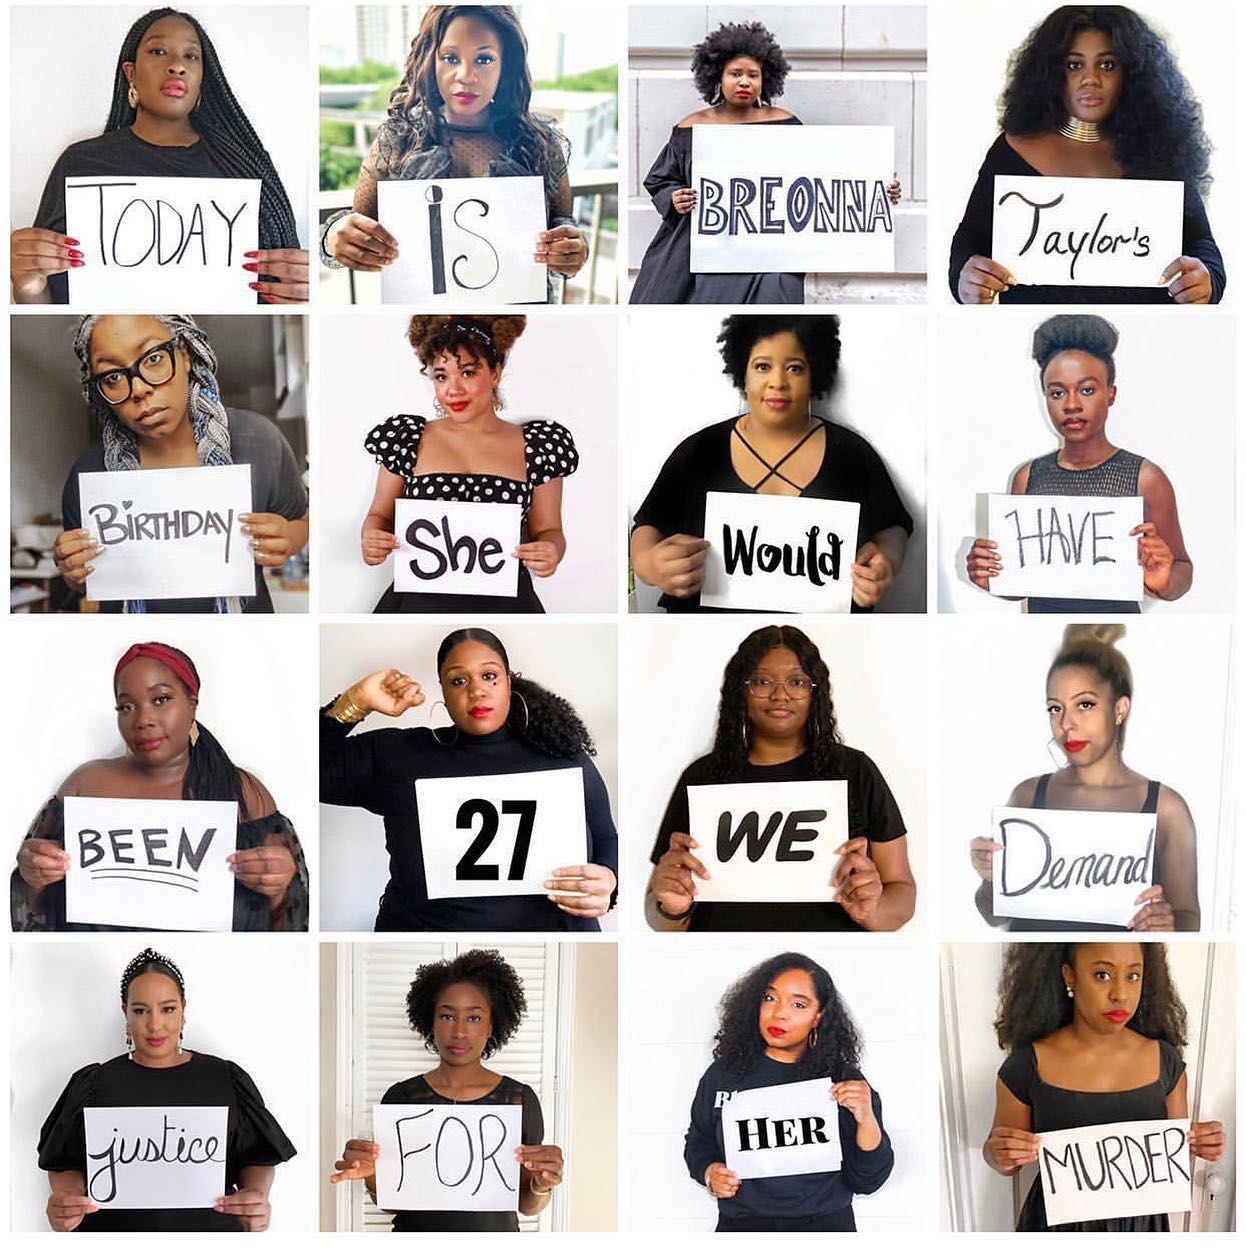 TODAY
is
BREONNA
Taylor's
BIRTHDAY
She
Would
HAVE
BEEN
27
WE
Demand
justice
FOR
HER
MURDER